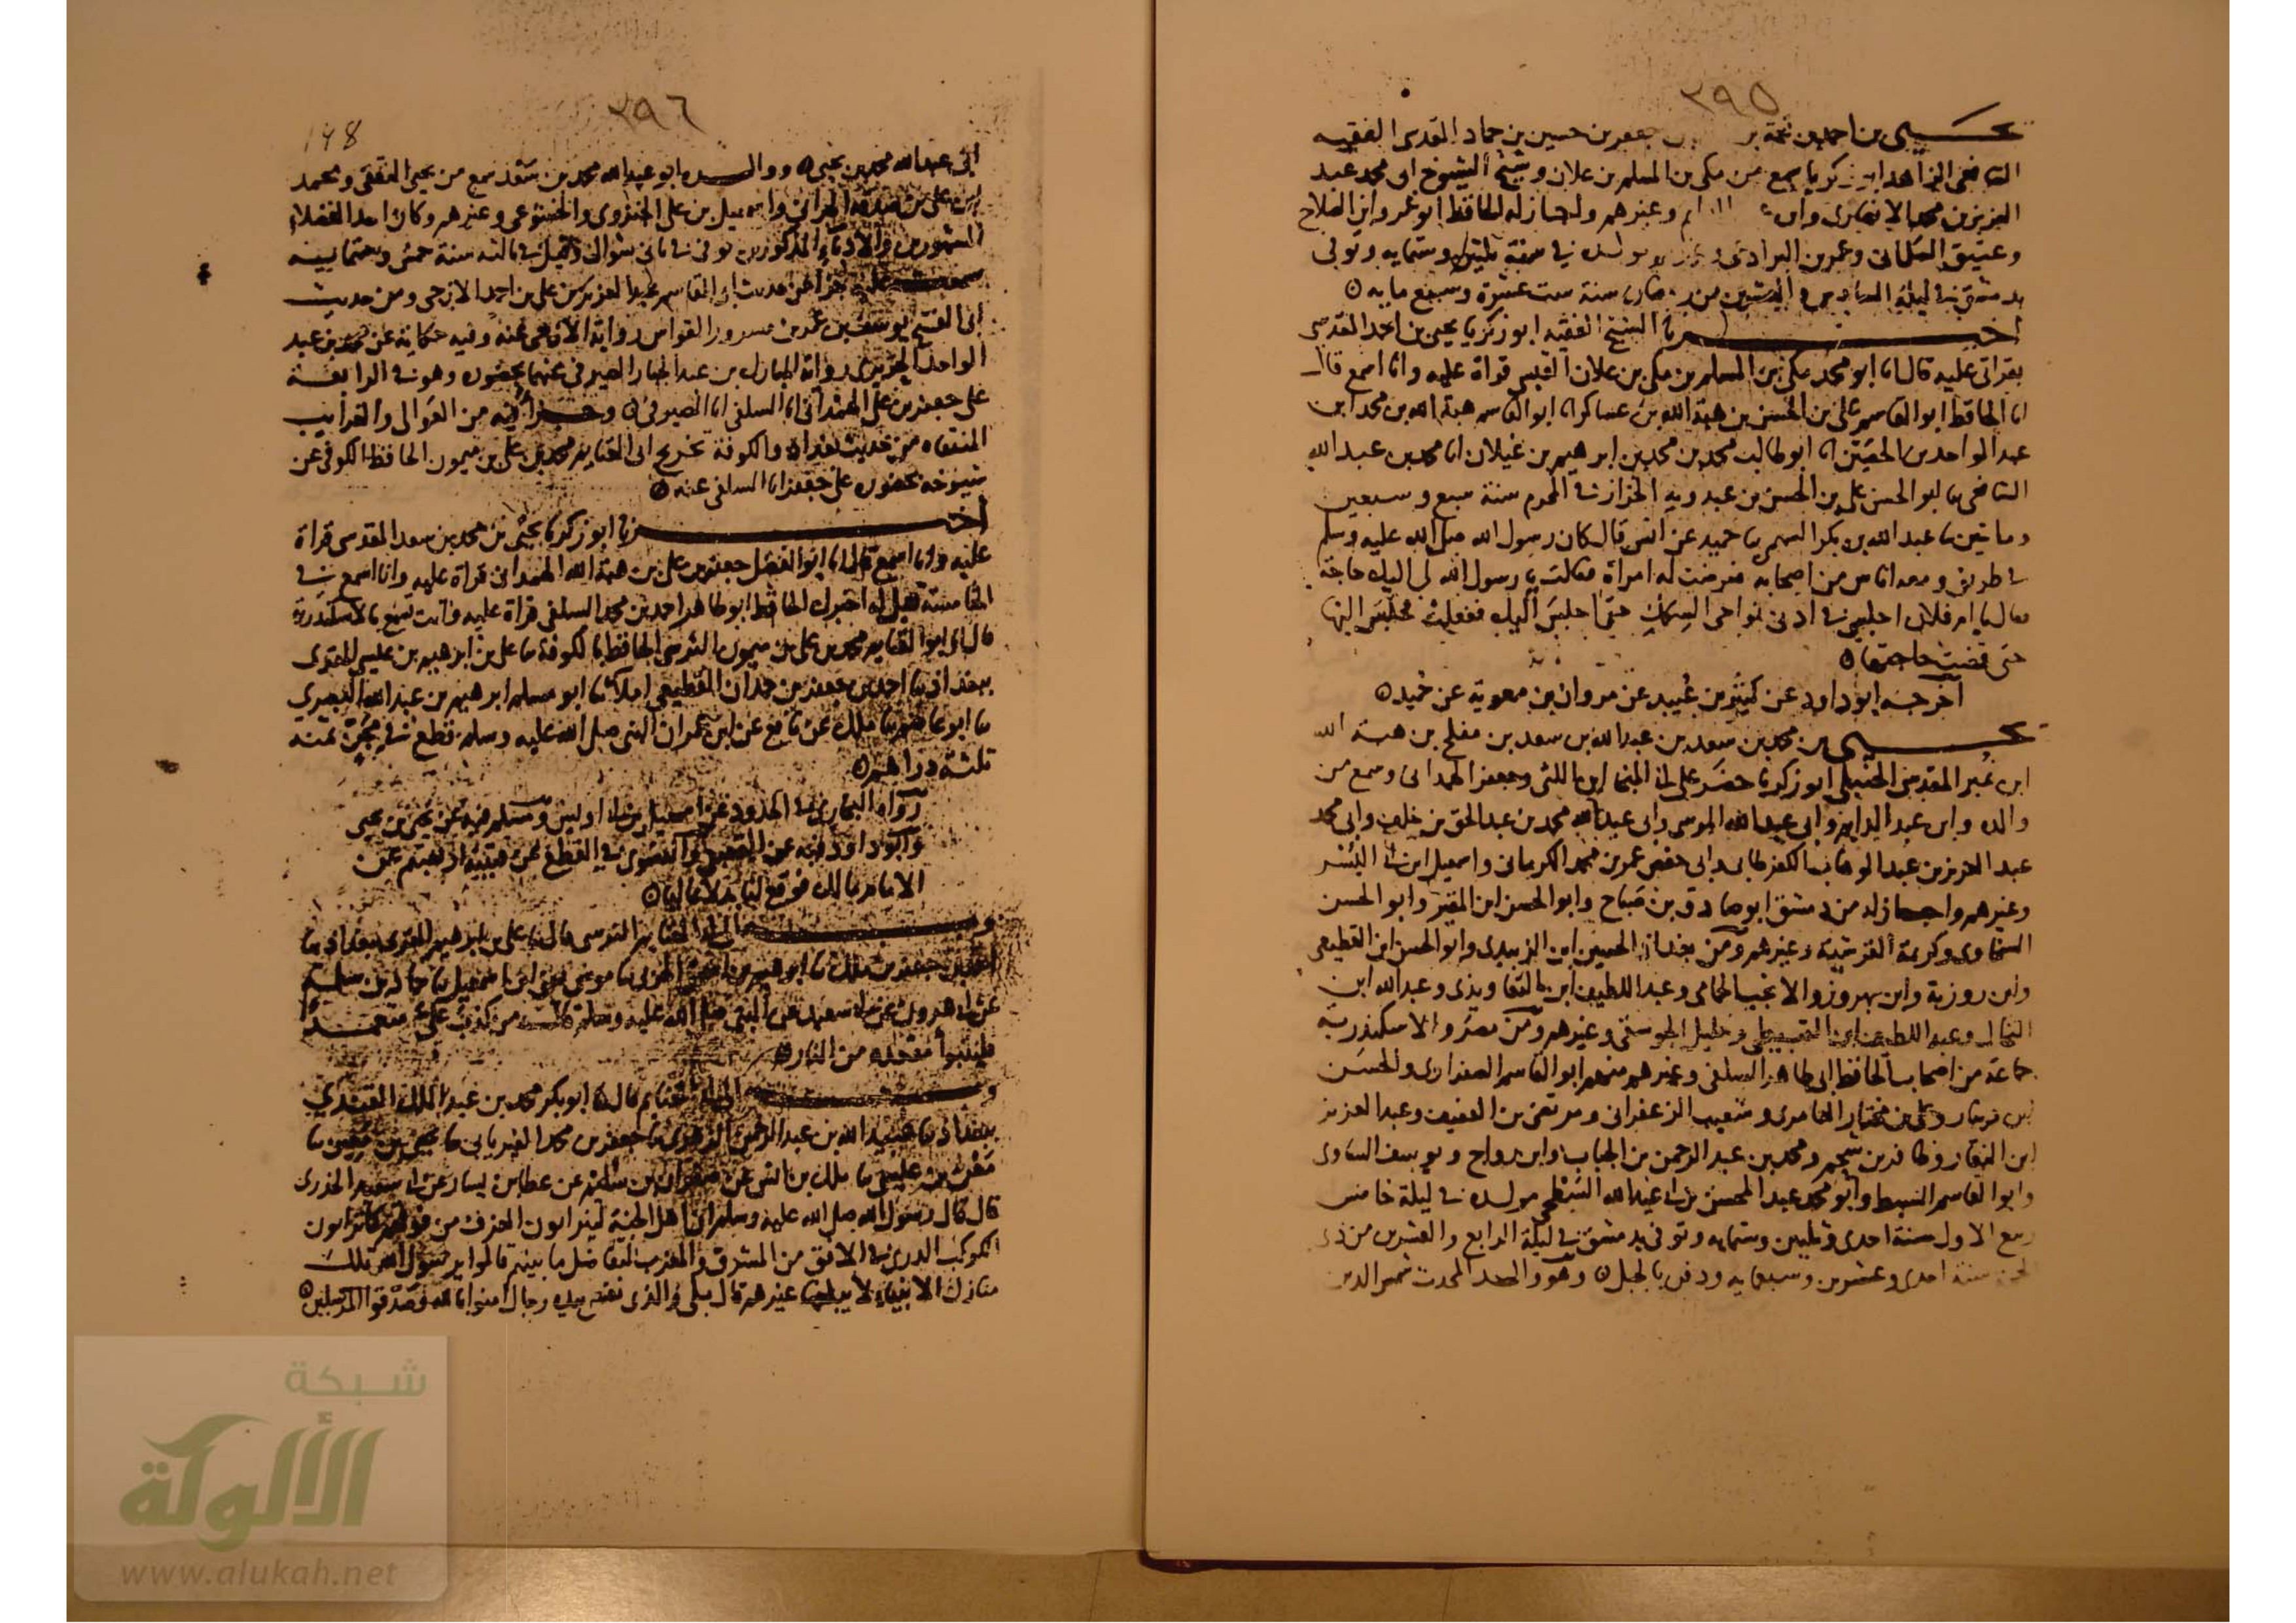 ٣٩٥
يحيى بن احمد بن نعمة بن جعفر بن حسين بن حماد المقدسى الفقيه
الشافعى الزاهد ابو زكريا سمع من مكى بن المسلم بن علان وشيخ الشيوخ ابى محمد عبد
العزيز بن محمد الانصارى وابن وغيرهم واجاز له الحافظ ابو عمرو ابن الصلاح
وعتيق السلمانى وعمر بن البرادعى مولده فى سنة ثلثين وستمايه وتوفى
بدمشق فى ليلة السادس والعشرين من رمضان سنة ست عشرة وسبع مايه
اخبرنا الشيخ الفقيه ابو زكريا يحيى بن احمد المقدسى
بقراتى عليه قال انا ابو محمد مكى بن المسلم بن مكى بن علان القيسى قراة عليه وانا اسمع قال
انا الحافظ ابو القاسم على بن الحسن بن هبة الله بن عساكر انا ابو القاسم هبة الله بن محمد ابن
عبد الواحد بن الحصين انا ابو طالب محمد بن محمد بن ابرهيم بن غيلان انا محمد بن عبد الله
الشافعى نا ابو الحسن على بن الحسن بن عبدويه الخزاز فى المحرم سنة سبع وسبعين
وماتين نا عبد الله بن بكر السهمى نا حميد عن انس قال كان رسول الله صلى الله عليه وسلم
فى طريق ومعه اناس من اصحابه فعرضت له امراة فقالت يا رسول الله لى اليك حاجة
فقال يا ام فلان اجلسى فى ادنى نواحى السكك حتى اجلس اليك ففعلت فجلس اليها
حتى قضت حاجتها
اخرجه ابو داود عن كثير بن عبيد عن مروان بن معوية عن حميد
يحيى بن محمد بن سعد بن عبد الله بن سعد بن مفلح بن هبة الله
ابن نمير المقدسى الحنبلى ابو زكريا حضر على ابى المنجا ابن اللتى وجعفر الهمدانى وسمع من
والده وابن عبد الدايم وابى عبد الله المرسى وابى عبد الله محمد بن عبد الحق بن خلف وابى محمد
عبد العزيز بن عبد الوهاب الكفرطابى وابى حفص عمر بن محمد الكرمانى واسمعيل ابن ابى اليسر
وغيرهم واجاز له من دمشق ابو صادق بن صباح وابو الحسن ابن المقير وابو الحسن
السخاوى وكريمة القرشية وغيرهم ومن بغداد الحسين ابن الزبيدى وابو الحسن ابن القطيعى
وابن روزبة وابن بهروز والانجب الحمامى وعبد اللطيف ابن التعاويذى وعبد الله ابن
النخال وعبد اللطيف ابن القبيطى وخليل الجوسقى وغيرهم ومن مصر والاسكندرية
جماعة من اصحاب الحافظ ابى طاهر السلفى وغيرهم منهم ابو القاسم الصفراوى والحسن
بن دينار وعلى بن مختار العامرى وشعيب الزعفرانى ومرتضى بن العفيف وعبد العزيز
ابن النقار وظافر بن شحم ومحمد بن عبد الرحمن بن الجباب وابن رواج ويوسف الساوى
وابو القاسم السبط وابو محمد عبد المحسن بن ابى عبد الله السطحى مولده فى ليلة خامس
ربيع الاول سنة احدى وثلثين وستمايه وتوفى بدمشق فى ليلة الرابع والعشرين من ذى
الحجة سنة احدى وعشرين وسبعمايه ودفن بالجبل وهو والد المحدث شمس الدين
٣٩٦
١٩٨
ابى عبد الله محمد بن يحيى ووالده ابو عبد الله محمد بن سعد سمع من يحيى الثقفى ومحمد
بن على بن صدقة الحرانى واسمعيل بن على الجنزوى والخشوعى وغيرهم وكان احد الفضلاء
المشهورين والادباء المذكورين توفى فى ثانى شوال وقيل فى ثالثه سنة خمسين وستمايه
سمعت عليه جزا من حديث ابى القاسم عبد العزيز بن على بن احمد الازجى ومن حديث
ابى الفتح يوسف بن عمر بن مسرور القواس رواية الازجى عنه وفيه حكاية عن محمد بن عبد
الواحد الحريرى رواية المبارك بن عبد الجبار الصيرفى عنهما بحضوره وهو فى الرابعة
على جعفر بن على الهمدانى انا السلفى انا الصيرفى وجزأ فيه من العوالى والغرايب
المنتقاه من حديث بغداد والكوفة تخريج ابى الغنايم محمد بن على بن ميمون الحافظ الكوفى عن
شيوخه بحضوره على جعفر انا السلفى عنه
اخبرنا ابو زكريا يحيى بن محمد بن سعد المقدسى قراة
عليه وانا اسمع قال انا ابو الفضل جعفر بن على بن هبة الله الهمدانى قراة عليه وانا اسمع فى
الخامسة قيل له اخبرك الحافظ ابو طاهر احمد بن محمد السلفى قراة عليه وانت تسمع بالاسكندرية
قال انا ابو الغنايم محمد بن على بن ميمون النرسى الحافظ بالكوفة نا على بن ابرهيم بن عيسى المقرى
ببغداد نا احمد بن جعفر بن حمدان القطيعى املاء نا ابو مسلم ابرهيم بن عبد الله البصرى
نا ابو عاصم نا ملك عن نافع عن ابن عمر ان النبى صلى الله عليه وسلم قطع فى مجن ثمنه
ثلثة دراهم
رواه البخارى فى الحدود عن اسمعيل بن ابى اويس ومسلم فيه عن يحيى بن يحيى
وابو داود فيه عن القعنبى والنسوى فى القطع عن قتيبة اربعتهم عن
الامام مالك فوقع لنا بدلا عاليا
وبه قال انا ابو الغنايم النرسى قال نا على بن ابرهيم المقرى ببغداد نا
احمد بن جعفر بن ملك نا ابرهيم بن اسحق الحربى نا موسى يعنى ابن اسمعيل نا حماد بن سلمة
عن ابى هرون عن ابى سعيد عن النبى صلى الله عليه وسلم قال من كذب على متعمدا
فليتبوأ مقعده من النار
وبه الى ابى الغنايم قال انا ابو بكر محمد بن عبد الملك
ببغداد نا عبيد الله بن عبد الرحمن الزهرى نا جعفر بن محمد الفريابى نا يحيى بن معين نا
معن بن عيسى نا ملك بن انس عن صفوان بن سليم عن عطا بن يسار عن ابى سعيد الخدرى
قال قال رسول الله صلى الله عليه وسلم ان اهل الجنة ليتراون الغرف من فوقهم كما تراون
الكوكب الدرى فى الافق من المشرق والمغرب لتفاضل ما بينهم قالوا يا رسول الله تلك
منازل الانبياء لا يبلغها غيرهم قال بلى والذى نفسى بيده رجال امنوا بالله وصدقوا المرسلين
شبكة
الألوكة
www.alukah.net